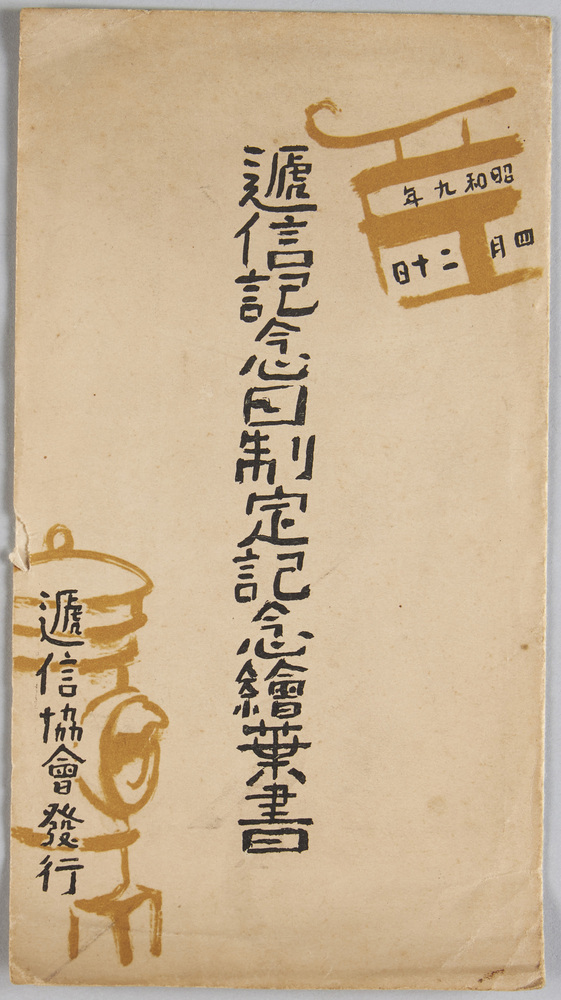 昭和九年
四月二十日
遞信記念日制定記念繪葉書
遞信協會發行